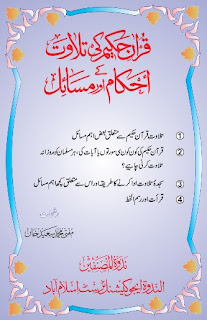 قرآن حکیم کی تلاوت
کے
احکام اور مسائل
① تلاوت قرآن حکیم سے متعلق بعض اہم مسائل
② قرآن حکیم کی کون کون سی سورتوں یا آیات کی، ہر مسلمان کو روزانہ
تلاوت کرنی چاہیے؟
③ سجدۂ تلاوت ادا کرنے کا طریقہ اور اس سے متعلق کچھ اہم مسائل
④ قرأت اور رسم الخط
مفتی محمد سعید خان
ندوۃ المصنفین
الندوہ ایجوکیشنل ٹرسٹ اسلام آباد